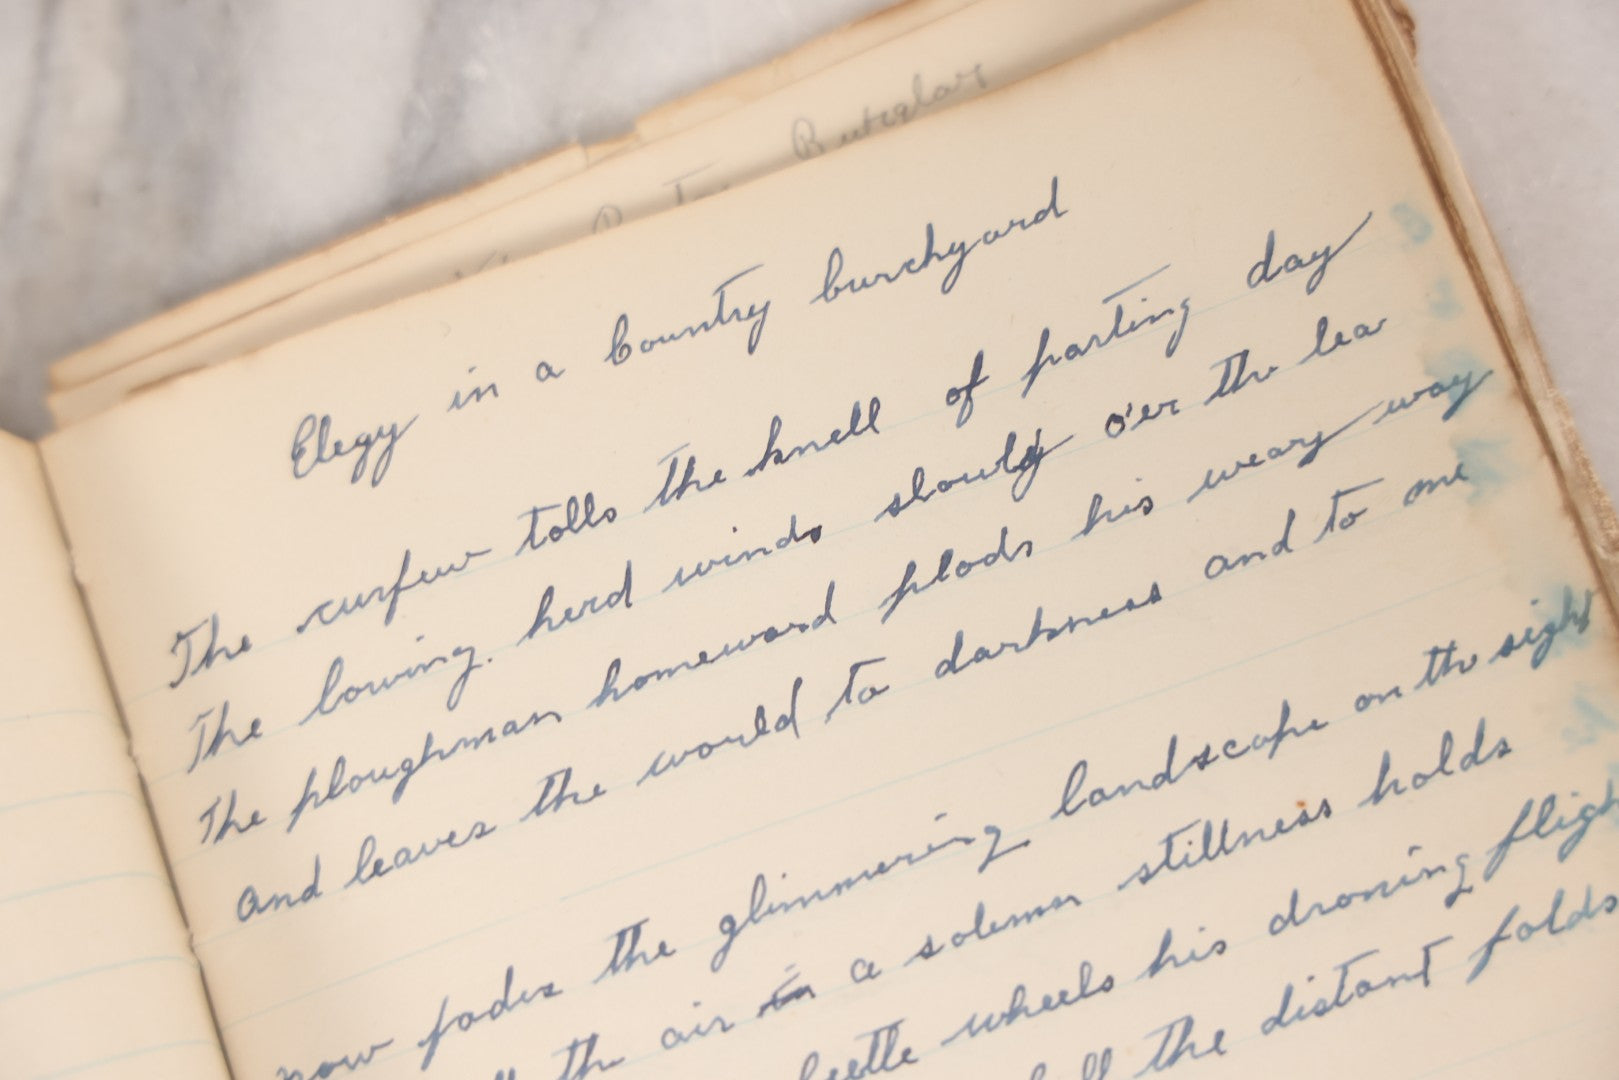 Burglar
Elegy in a Country Curchyard
The curfew tolls the knell of parting day
The lowing. herd winds slowly o'er the lea
The ploughman homeward plods his weary way
and leaves the world to darkness and to me
now fades the glimmering landscape on the sight
the air in a solemn stillness holds
beetle wheels his droning fligh
the distant folds